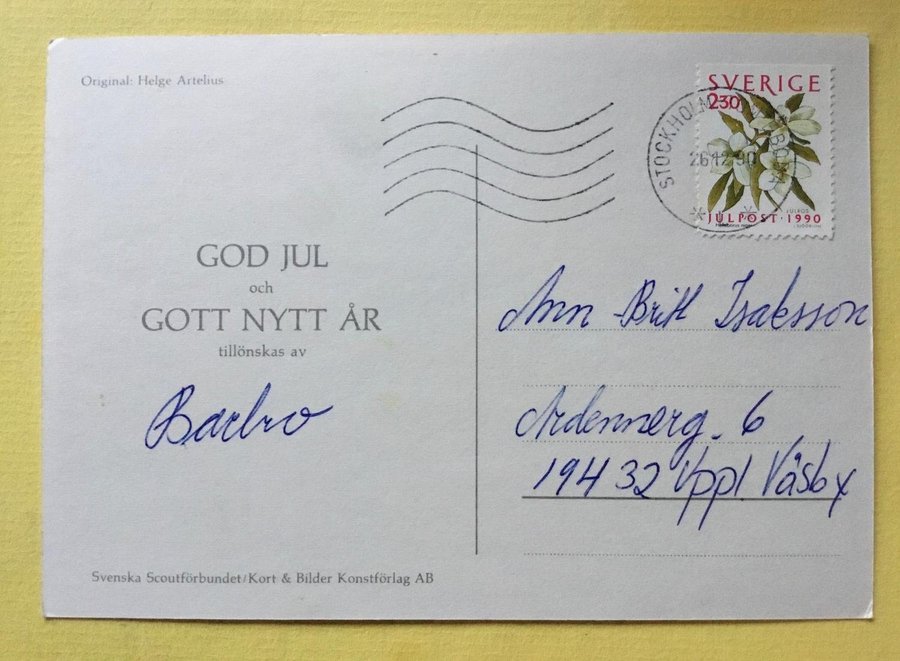 Original: Helge Artelius
SVERIGE
2.30
STOCKHOLM
26.12.90
JULROS
JULPOST · 1990
GOD JUL
och
GOTT NYTT ÅR
tillönskas av
Barbro
Ann-Britt Isaksson
Ardennerg. 6
194 32 Uppl Väsby
Svenska Scoutförbundet/Kort & Bilder Konstförlag AB